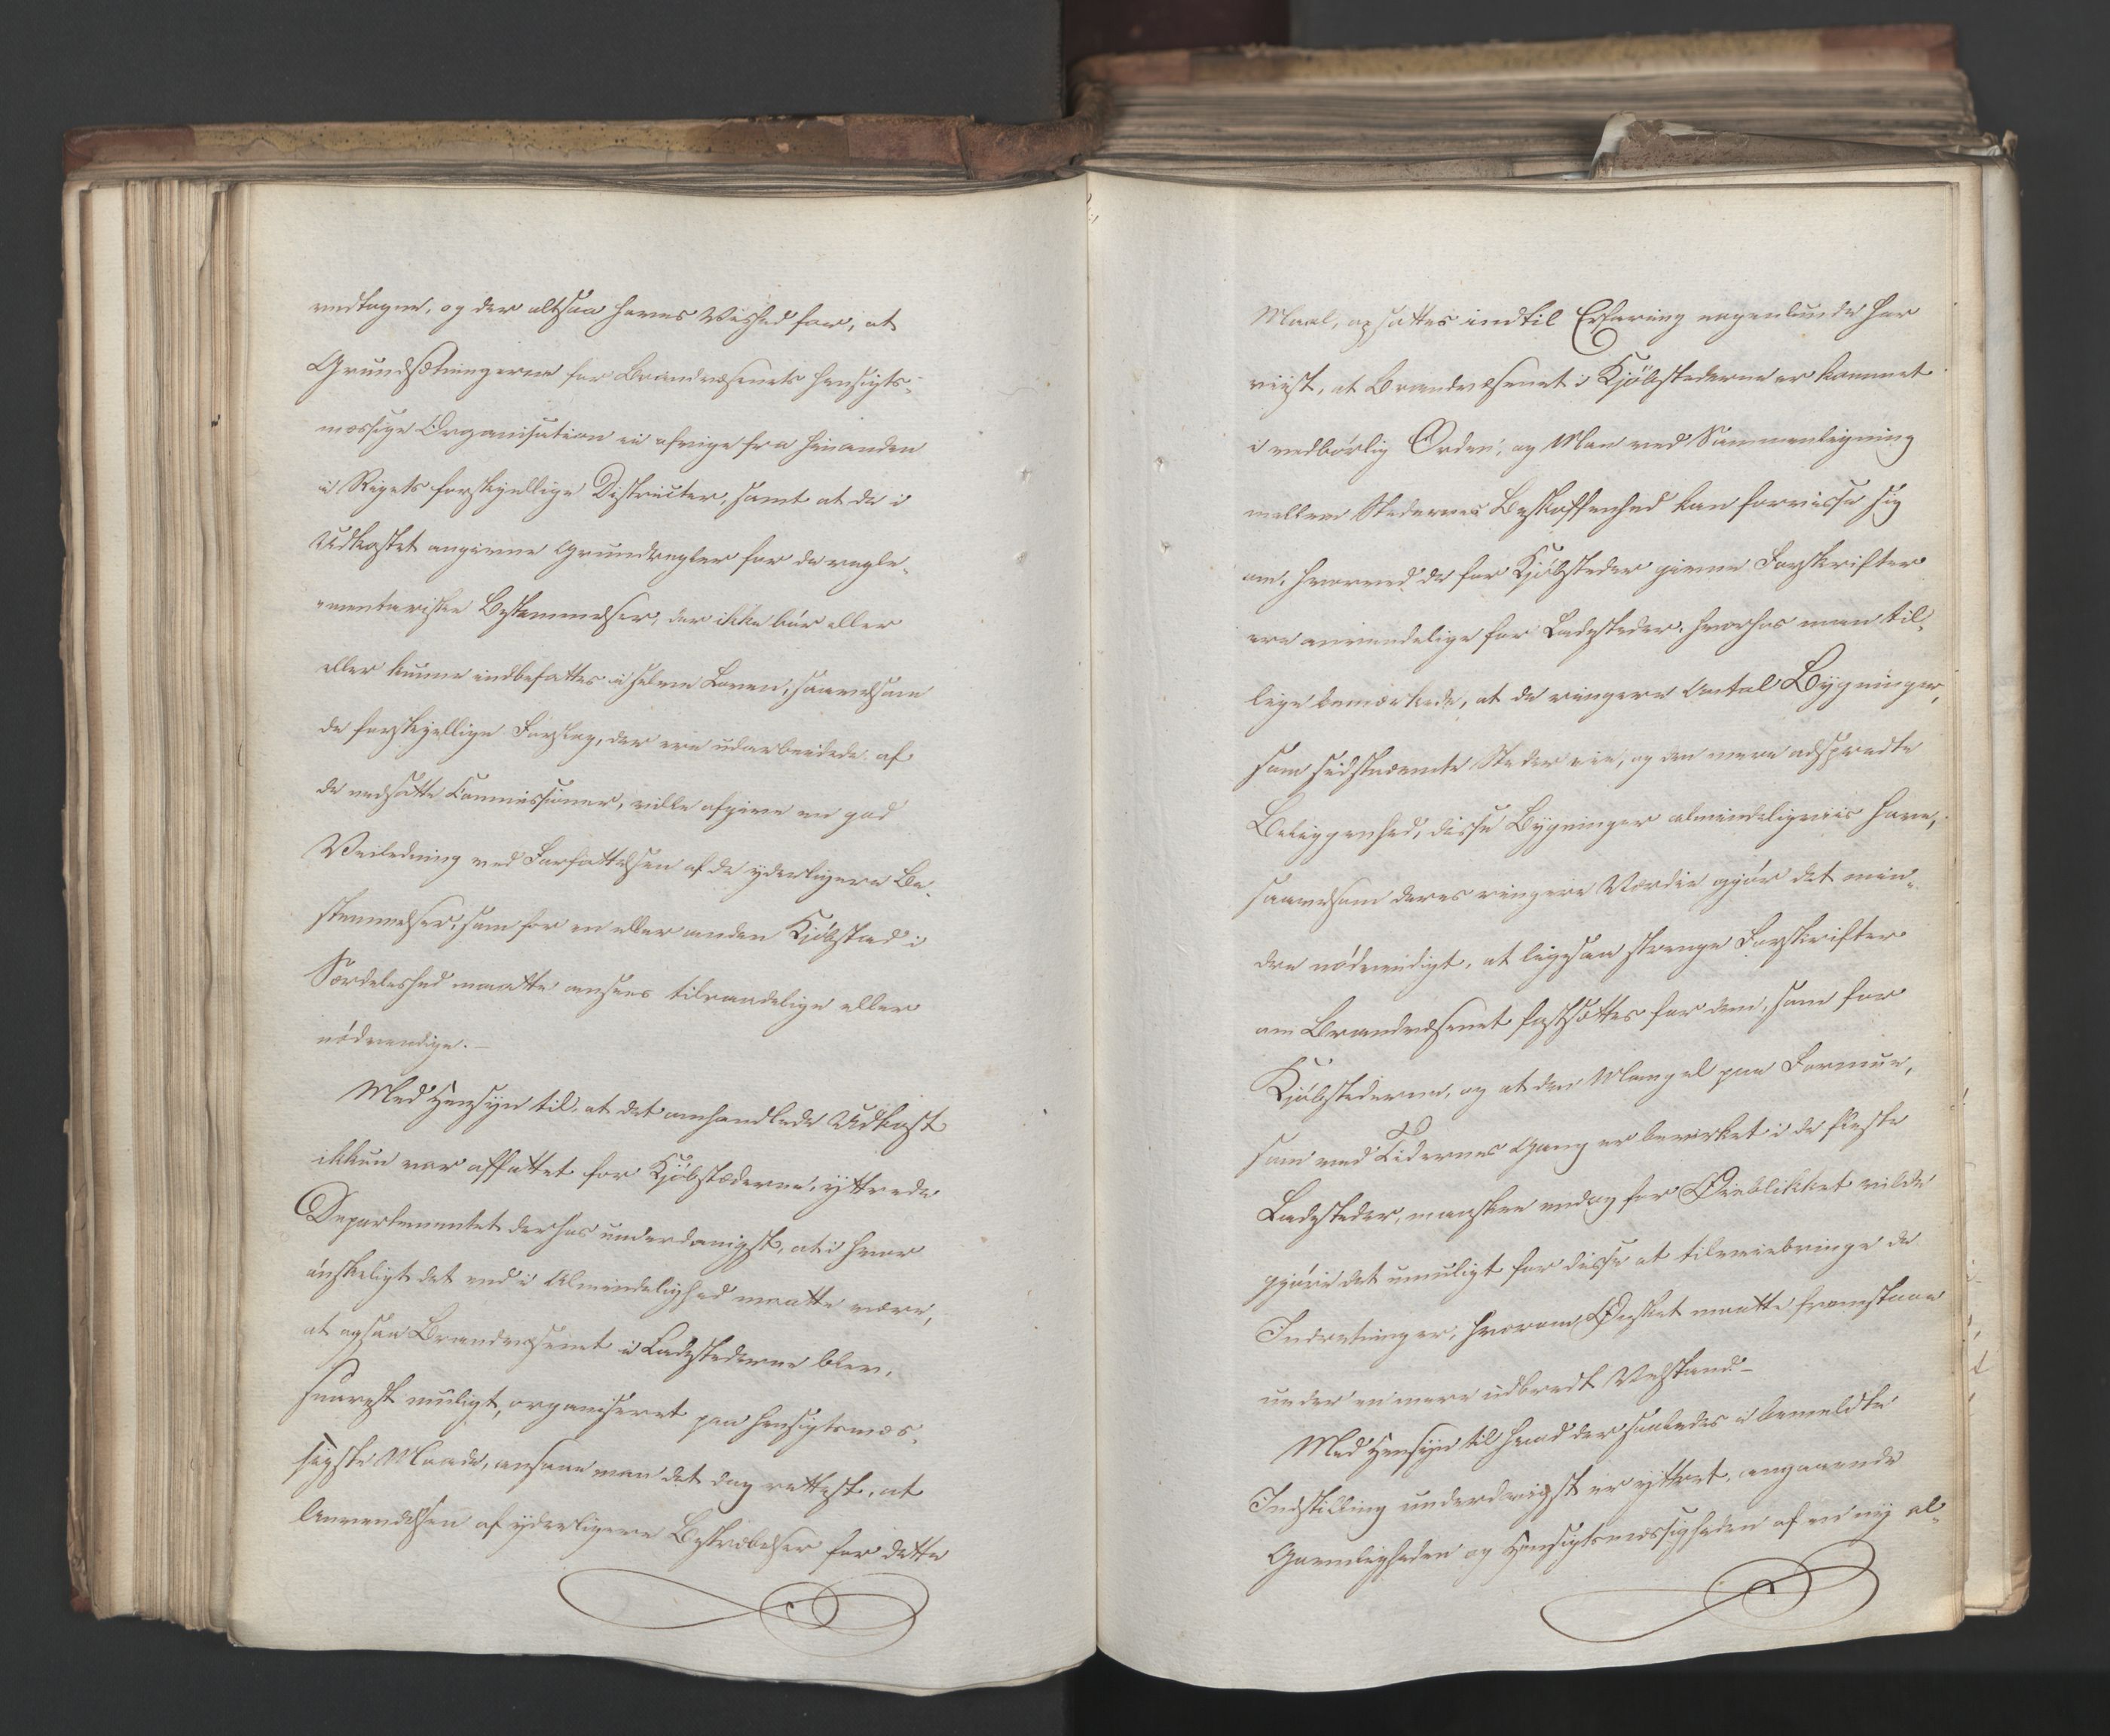 vedtagne, og der altsaa haves Vished for, at
Grundsætningerne for Brandvæsenets hensigts-
mæssige Organisation ei afvige fra hinanden
i Rigets forskjellige Districter, samt at de i
Udkastet angivne Grundregler for de regle-
mentariske Bestemmelser, der ikke bør eller
eller kunne indbefattes i selve Loven, saavelsom
de forskjellige Forslag, der ere udarbeidede af
de nedsatte Commissioner, ville afgive en god
Veiledning ved Forfattelsen af de yderligere Be-
stemmelser, som for en eller anden Kjøbstad i
Særdeleshed maatte ansees tilraadelige eller
nødvendige. —
Med Hensyn til, at det omhandlede Udkast
ikkun var affattet for Kjøbstæderne, yttrede
Departementet derhos underdanigst, at i hvor
ønskeligt det end i Almindelighed maatte være,
at ogsaa Brandvæsenet i Ladestederne blev,
snarest muligt, organiseret paa hensigtsmæs-
sigste Maade, ansaae man det dog rettest, at
Anvendelsen af yderligere Bestræbelser for dette
Maal, opsættes indtil Erfaring nogenlunde har
viist, at Brandvæsenet i Kjøbstederne er kommet
i vedbørlig Orden, og Man ved Sammenligning
mellem Stedernes Beskaffenhed kan forvisse sig
om, hvorvidt de for Kjøbsteder givne Forskrifter
ere anvendelige for Ladesteder, hvorhos man til-
lige bemærkede, at de ringere Antal Bygninger,
som sidstnævnte Steder eie, og den mere adspredte
Beliggenhed, disse Bygninger almindeligviis have,
saavelsom deres ringere Værdie gjør det min-
dre nødvendigt, at ligesaa strenge Forskrifter
om Brandvæsenet fastsættes for dem, som for
Kjøbstederne, og at den Mangel paa Formue,
som ved Tidernes Gang er bevirket i de fleste
Ladesteder, maaskee endog for Øieblikket vilde
gjøre det umuligt for disse at tilveiebringe de
Indretninger, hvorom Ønsket maatte fremstaae
under en mere udbredt Velstand. —
Med Hensyn til hvad der saaledes i bemeldte
Indstilling underdanigst er yttret, angaaende
Gavnligheden og Hensigtsmæssigheden af en ny al-